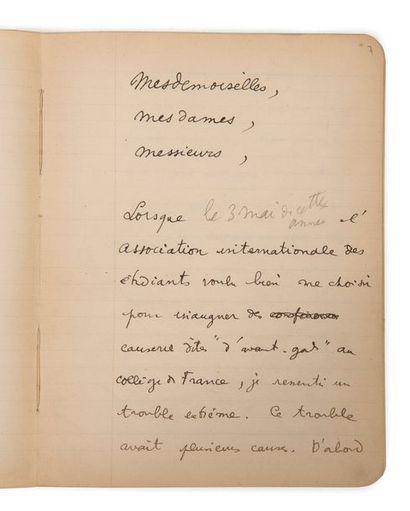 7
Mesdemoiselles,
Mesdames,
Messieurs,
Lorsque le 3 mai de cette année l'
Association internationale des
étudiants voulu bien me choisir
pour inaugurer des conférences
causerie dites "d'avant-gal" au
collège de France, je ressenti un
trouble extrême. Ce trouble
avait plusieurs causes. D'abord